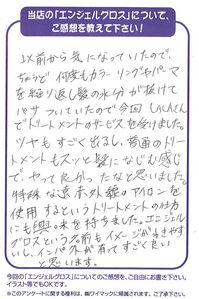 当店の「エンジェルグロス」について、
ご感想を教えて下さい!
以前から気になっていたので、
ちょうど何度もカラーリングやパーマ
を繰り返し髪の水分が抜けて
パサついていたので今回LACAさん
でトリートメントのサービスを受けました。
ツヤもすごく出るし、普通のトリ
ートメントもスッと髪になじむ感じ
で、やって良かったなと思いました。
特殊な遠赤外線のアイロンを
使用するというトリートメントの仕方
にも興味を持ちました。エンジェル
グロスという名前もイメージがしやす
いし、インパクトが有ってすごく良い
と思います。
今回の「エンジェルグロス」についてのご感想を、ご自由にお書き下さい。
イラスト等でもOKです。
※このアンケートに関する権利は、㈱ワイマックに帰属されます。ご了承下さい。